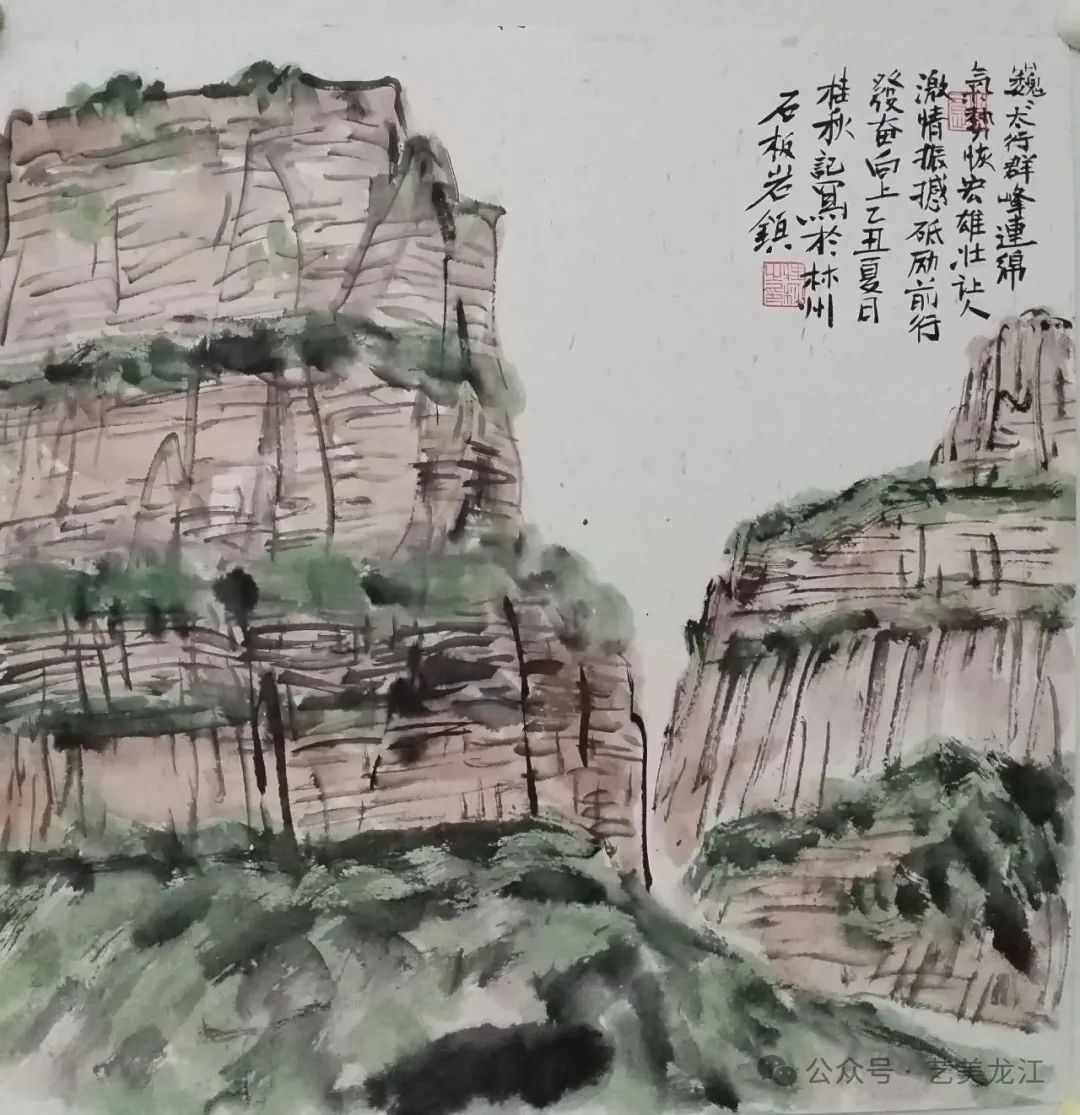 巍々太行群峰連綿
氣勢恢宏雄壯让人
激情振撼砥励前行
發奋向上乙丑夏日
桂秋記寫於林州
石板岩鎮
公众号·艺美龙江